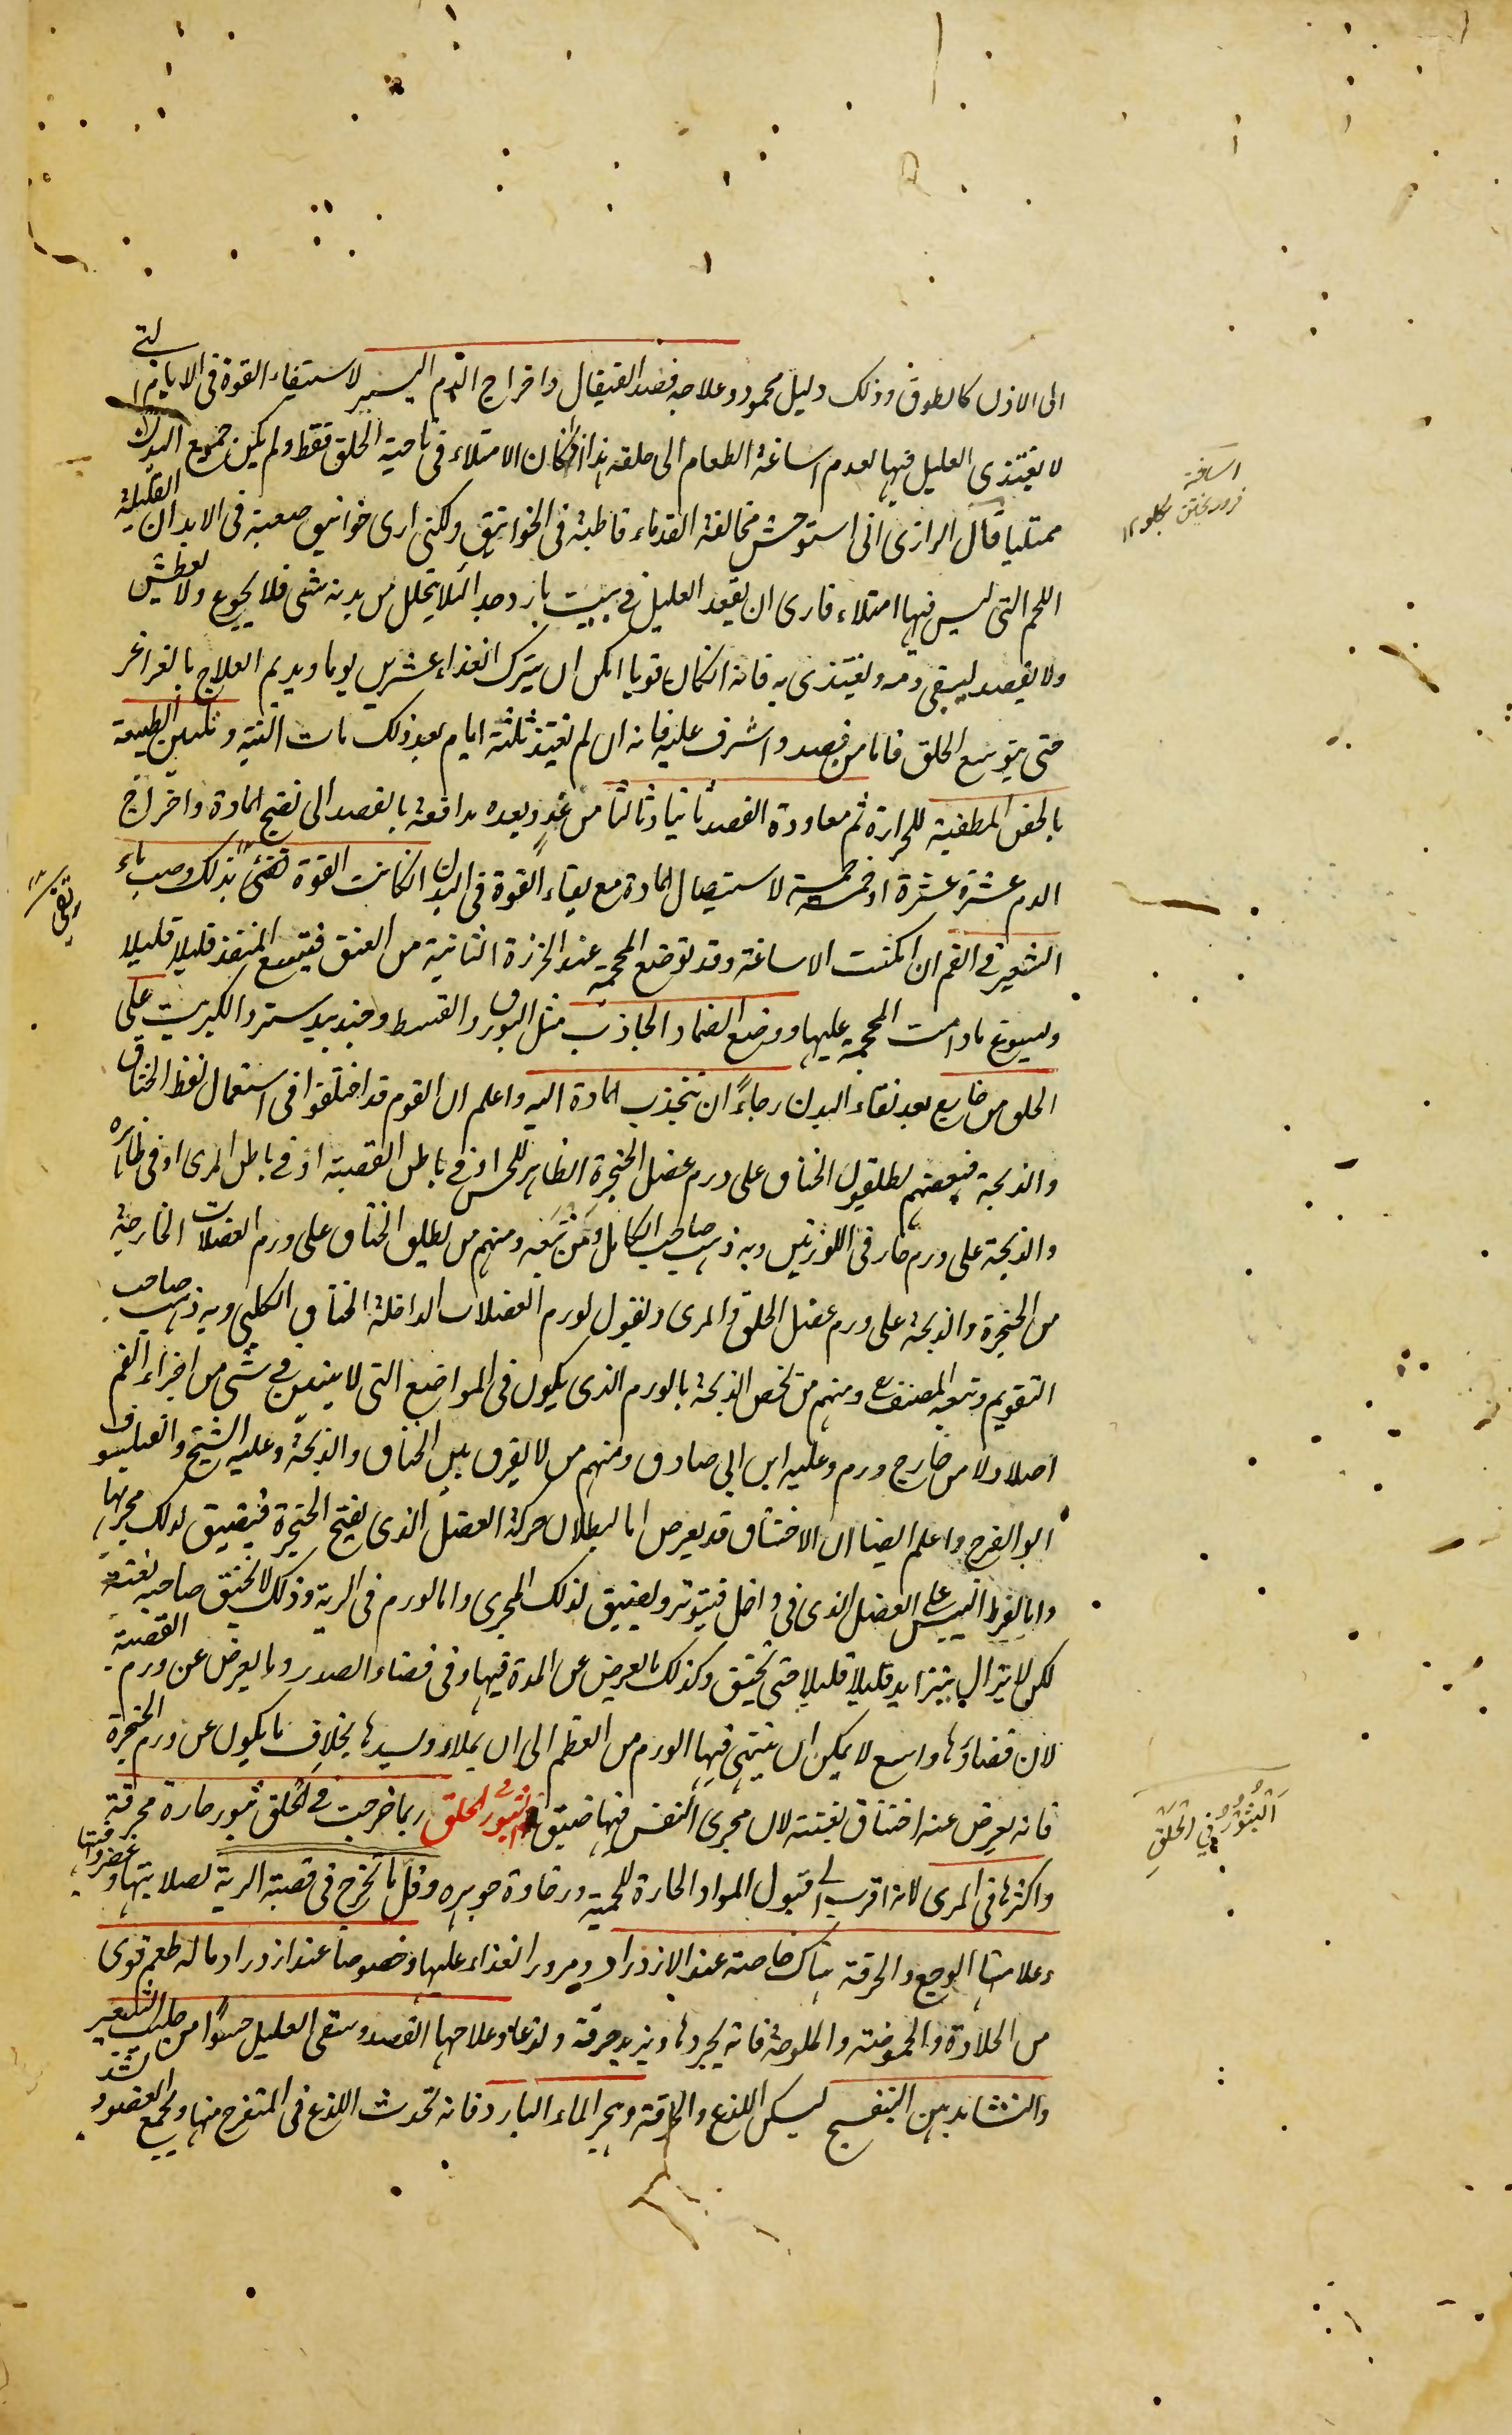 الى الاذن كالطوق وذلك دليل محمود وعلاجه فصد القيفال واخراج الدم اليسير لاستبقاء القوة فى الايام التي
لا يغتذى العليل فيها لعدم اساغة الطعام الى حلقه هذا اذا كان الامتلاء فى ناحية الحلق فقط ولم يكن جميع البدن
ممتليا قال الرازى انى استوحش مخالفة القدماء قاطبة فى الخوانيق ولكنى ارى خوانيق صعبة فى الابدان القليلة
اللحم التى ليس فيها امتلاء فارى ان يقعد العليل فى بيت بارد جدا لئلا يتحلل من بدنه شى فلا يجوع ولا يعطش
ولا يفصد ليبقى دمه ويغتذى به فانه انكان قويا امكن ان يترك الغذاء عشرين يوما ويديم العلاج بالغراغر
حتى يتوسع الحلق فاما من فصد واشرف عليه فانه ان لم يغتذ ثلثة ايام بعد ذلك مات البتة وتليين الطبيعة
بالحقن المطفية للحرارة ثم معاودة الفصد ثانيا وثالثا من غد وبعده مدافعة بالفصد الى نضج المادة واخراج
الدم عشرة عشرة او خمسة خمسة لاستيصال المادة مع بقاء القوة فى البدن انكانت القوة تفئ بذلك وصب ماء
الشعير فى الفم ان امكنت الاساغة وقد توضع المحجمة عند الخرزة الثانية من العنق فيتسع المنفذ قليلا قليلا
ويسوغ ما دامت المحجمة عليها ووضع الضماد الجاذب مثل البورق والقسط وجندبيدستر والكبريت على
الحلق من خارج بعد نقاء البدن رجاءً ان تنجذب المادة اليه واعلم ان القوم قد اختلفوا فى استعمال لفظ الخناق
والذبحة فبعضهم يطلقون الخناق على ورم عضل الحنجرة الظاهر للحس او فى باطن القصبة او فى باطن المرى او فى ظاهره
والذبحة على ورم حار فى اللوزتين وبه ذهب صاحب الكامل ومن تبعه ومنهم من يطلق الخناق على ورم العضلات الخارجة
من الحنجرة والذبحة على ورم عضل الحلق والمرى ويقول لورم العضلات الداخلة الخناق الكلبى وبه ذهب صاحب
التقويم وتبعه المصنف ومنهم من يخص الذبحة بالورم الذى يكون فى المواضع التى لا يتبين فى شى من اجزاء الفم
اصلا ولا من خارج ورم وعليه ابن ابى صادق ومنهم من لا يفرق بين الخناق والذبحة وعليه الشيخ والفيلسوف
ابو الفرج واعلم ايضا ان الاختناق قد يعرض اما لبطلان حركة العضل الذى يفتح الحنجرة فيضيق لذلك مجراها
واما لفرط اليبس على العضل الذى فى داخل فيتوتر ويضيق لذلك المجرى واما لورم فى الرية وذلك لا يخنق صاحبه بغتة
لكن لا يزال يتزايد قليلا قليلا حتى يخنق وكذلك ما يعرض عن المدة فيها وفى فضاء الصدر وما يعرض عن ورم القصبة
لان فضاوها واسع لا يمكن ان ينتهى فيها الورم من العظم الى ان يملاء ويسدها بخلاف ما يكون عن ورم الحنجرة
فانه يعرض عنه اختناق بغتة لان مجرى النفس فيها ضيق البثور فى الحلق ربما خرجت فى الحلق بثور حارة محرقة
واكثرها فى المرى لانه اقرب الى قبول المواد الحارة للحمية ورخاوة جوهره وقل ما تخرج فى قصبة الرية لصلابتها وغضروفيتها
وعلامتها الوجع والحرقة هناك خاصة عند الازدراد ومرور الغذاء عليها وخصوصا عند ازدراد ما له طعم قوى
من الحلاوة والحموضة والملوحة فانه يجردها ويزيد حرقة ولذعا وعلاجها الفصد وسقى العليل حسوًا من حليب الشعير
والنشا بدهن البنفسج ليسكن اللذع والحرقة ويهجر الماء البارد فانه يحدث اللذع فى المتقرح منها ويجمع العضو ويشد
اساغة
فرو ریختن بگلو ۱۲
تفى
البثور فى الحلق